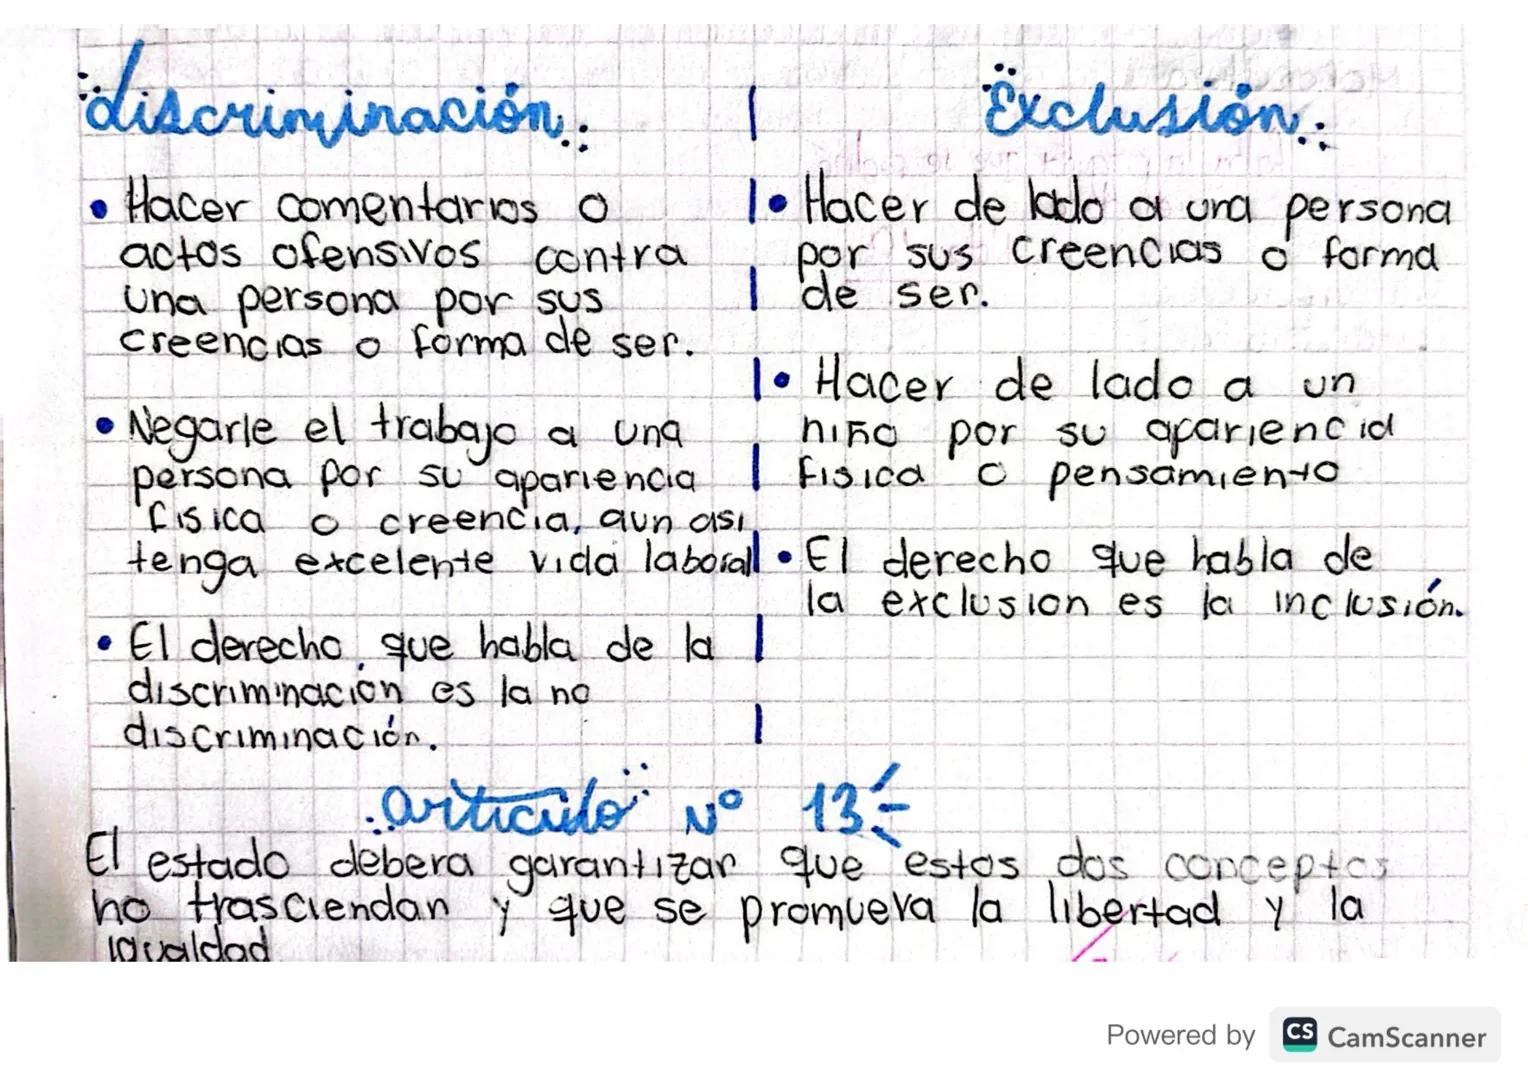 discriminación
• Hacer comentarios o
actos ofensivos contra
una persona por sus
creencias o forma de ser.
• Negarle el trabajo a una
persona por su apariencia
fisica o creencia, aun asi
tenga excelente vida laboral
• El derecho, que habla de la
discriminación es la no
discriminación.
Exclusión
• Hacer de lado a una persona
por sus creencias o forma
de ser.
• Hacer de lado a un
niño por su apariencia
fisica o pensamiento
• El derecho que habla de
la exclusion es la inclusión.
articulo N° 13
El estado debera garantizar que estos dos conceptos
no trasciendan y que se promueva la libertad y la
igualdad
Powered by CS CamScanner